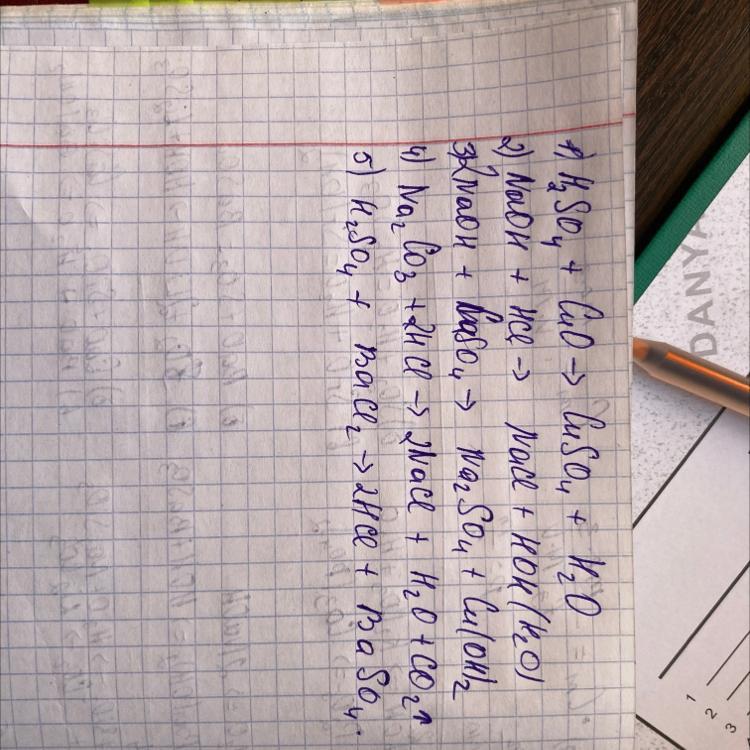 1) H₂SO₄ + CuO → CuSO₄ + H₂O
2) NaOH + HCl → NaCl + HOH (H₂O)
3) 2NaOH + CuSO₄ → Na₂SO₄ + Cu(OH)₂
4) Na₂CO₃ + 2HCl → 2NaCl + H₂O + CO₂↑
5) H₂SO₄ + BaCl₂ → 2HCl + BaSO₄.
DANYA
1
2
3